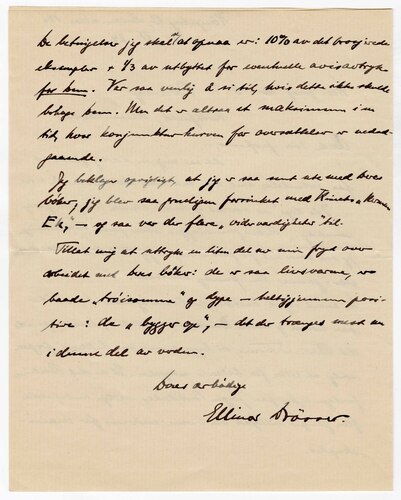 De betingelser jeg skal at opnaa er: 10% av det broscherede
eksemplar + 1/3 av utbyttet for eventuelle avisavtryk
før bem. Vær saa venlig å si til, hvis dette ikke skulle
behage Dem. Men det er altsaa et maksimum i en
tid, hvor konjunkturkurven for oversættelser er nedad-
gaaende.
Jeg beklager oprigtigt, at jeg er saa sent ute med Deres
bøker, jeg blev saa forsinket med
— og saa var der flere „viderværdigheter" til.
Tillat mig at uttrykke en liten del av min fryd over
arbeidet med Deres bøker: de er saa livsvarme, er
baade „ " og dype — helt igjennem posi-
tive: de „bygger op", — det der trænges mest nu
i denne del av verden.
Deres ærbødige
Ellinor